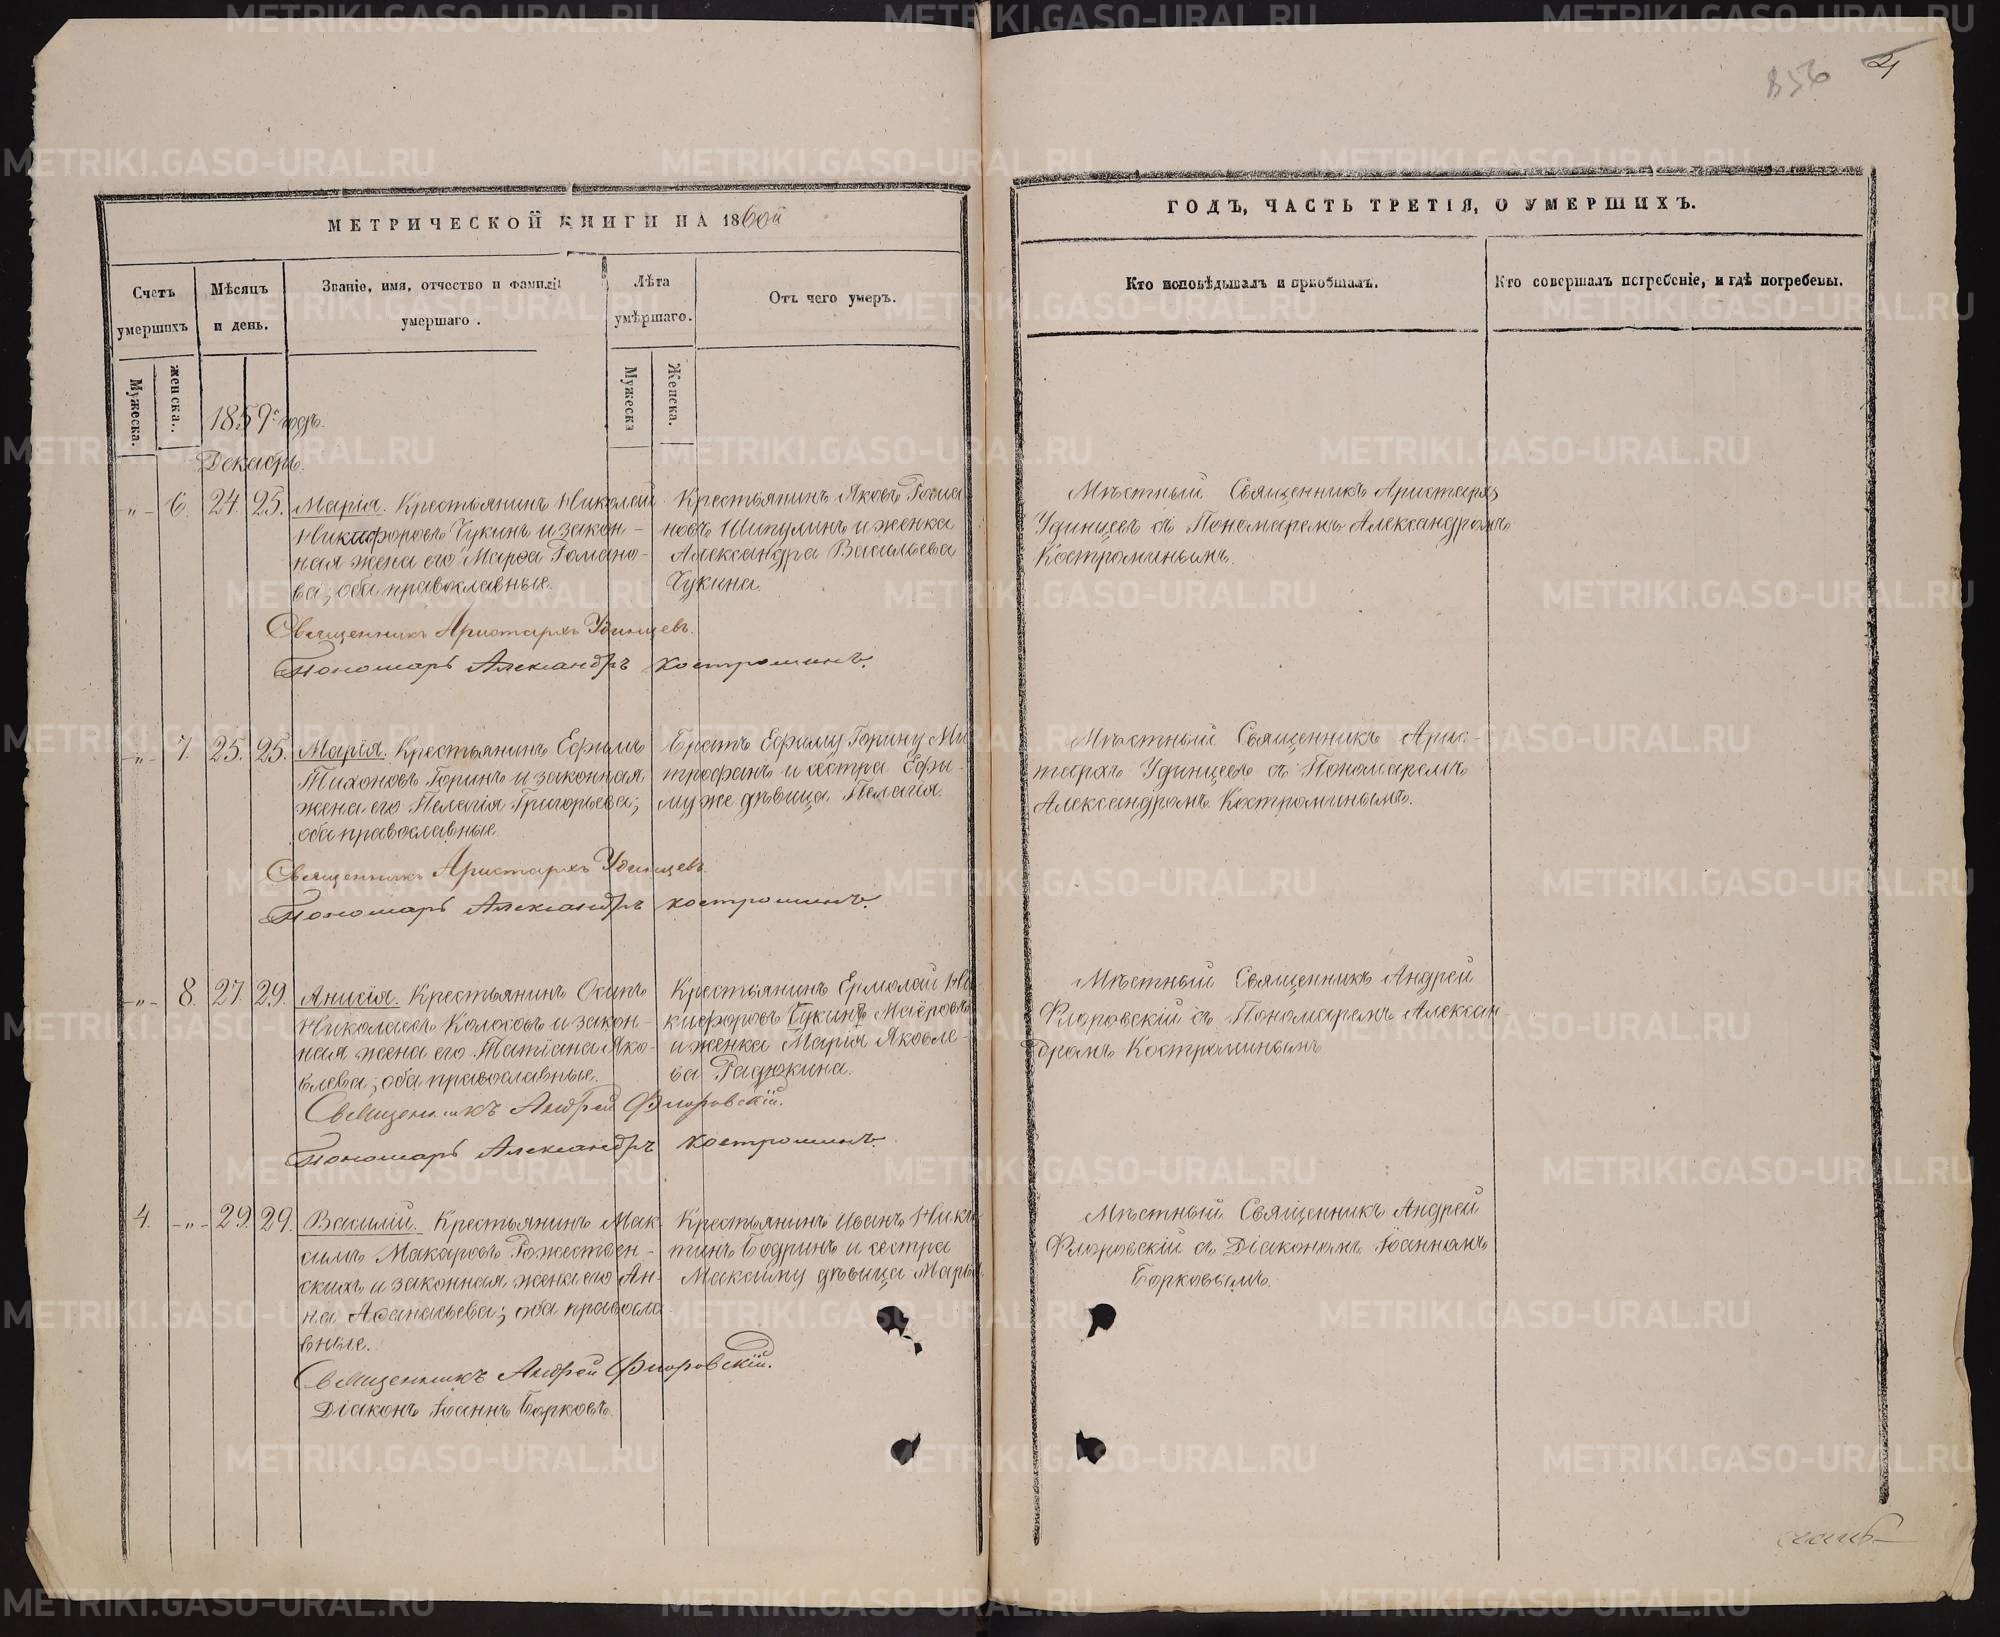 856
2
МЕТРИЧЕСКОЙ КНИГИ НА 1860й
Счетъ умершихъ
Мужеска.
женска.
Мѣсяцъ и день.
Званіе, имя, отчество и Фамилія умершаго.
Лѣта умѣршаго.
Мужеска
Женска.
Отъ чего умеръ.
1859 годъ.
Декабрь.
-„- 6. 24. 25. Марія. Крестьянинъ Николай
Никифоровъ Чукинъ и закон-
ная жена его Марѳа Романо-
ва; оба православные.
Крестьянинъ Яковъ Рома-
новъ Шипулинъ и женка
Александра Васильева
Чукина.
Священникъ Аристархъ Удинцевъ.
Пономарь Александръ Костроминъ.
-„- 7. 25. 25. Марія. Крестьянинъ Ефимъ
Тихоновъ Горинъ и законная
жена его Пелагія Григорьева;
оба православные.
Братъ Ефиму Горину Ми-
трофанъ и сестра Ефи-
му же дѣвица Пелагія.
Священникъ Аристархъ Удинцевъ.
Пономарь Александръ Костроминъ.
-„- 8. 27. 29. Анисія. Крестьянинъ Осипъ
Николаевъ Колосовъ и закон-
ная жена его Татіана Яко-
влева; оба православные.
Крестьянинъ Ермолай Ни-
кифоровъ Чукинъ Маёровъ
и женка Марія Яковле-
ва Гадюкина.
Священникъ Андрей Флоровскій.
Пономарь Александръ Костроминъ.
4. -„- 29. 29. Василій. Крестьянинъ Мак-
симъ Макаровъ Рожествен-
скихъ и законная жена его Ан-
на Аѳанасьева; оба правосла-
вные.
Крестьянинъ Иванъ Ники-
тинъ Бодринъ и сестра
Максиму дѣвица Марья
Священникъ Андрей Флоровскій.
Діаконъ Іоаннъ Борковъ.
ГОДЪ, ЧАСТЬ ТРЕТІЯ, О УМЕРШИХЪ.
Кто исповѣдывалъ и пріобщалъ.
Кто совершалъ погребеніе, и гдѣ погребены.
Мѣстный Священникъ Аристархъ
Удинцевъ съ Пономаремъ Александромъ
Костроминымъ.
Мѣстный Священникъ Арис-
тархъ Удинцевъ съ Пономаремъ
Александромъ Костроминымъ.
Мѣстный Священникъ Андрей
Флоровскій съ Пономаремъ Алексан-
дромъ Костроминымъ
Мѣстный Священникъ Андрей
Флоровскій съ Діакономъ Іоанномъ
Борковымъ.
METRIKI.GASO-URAL.RU